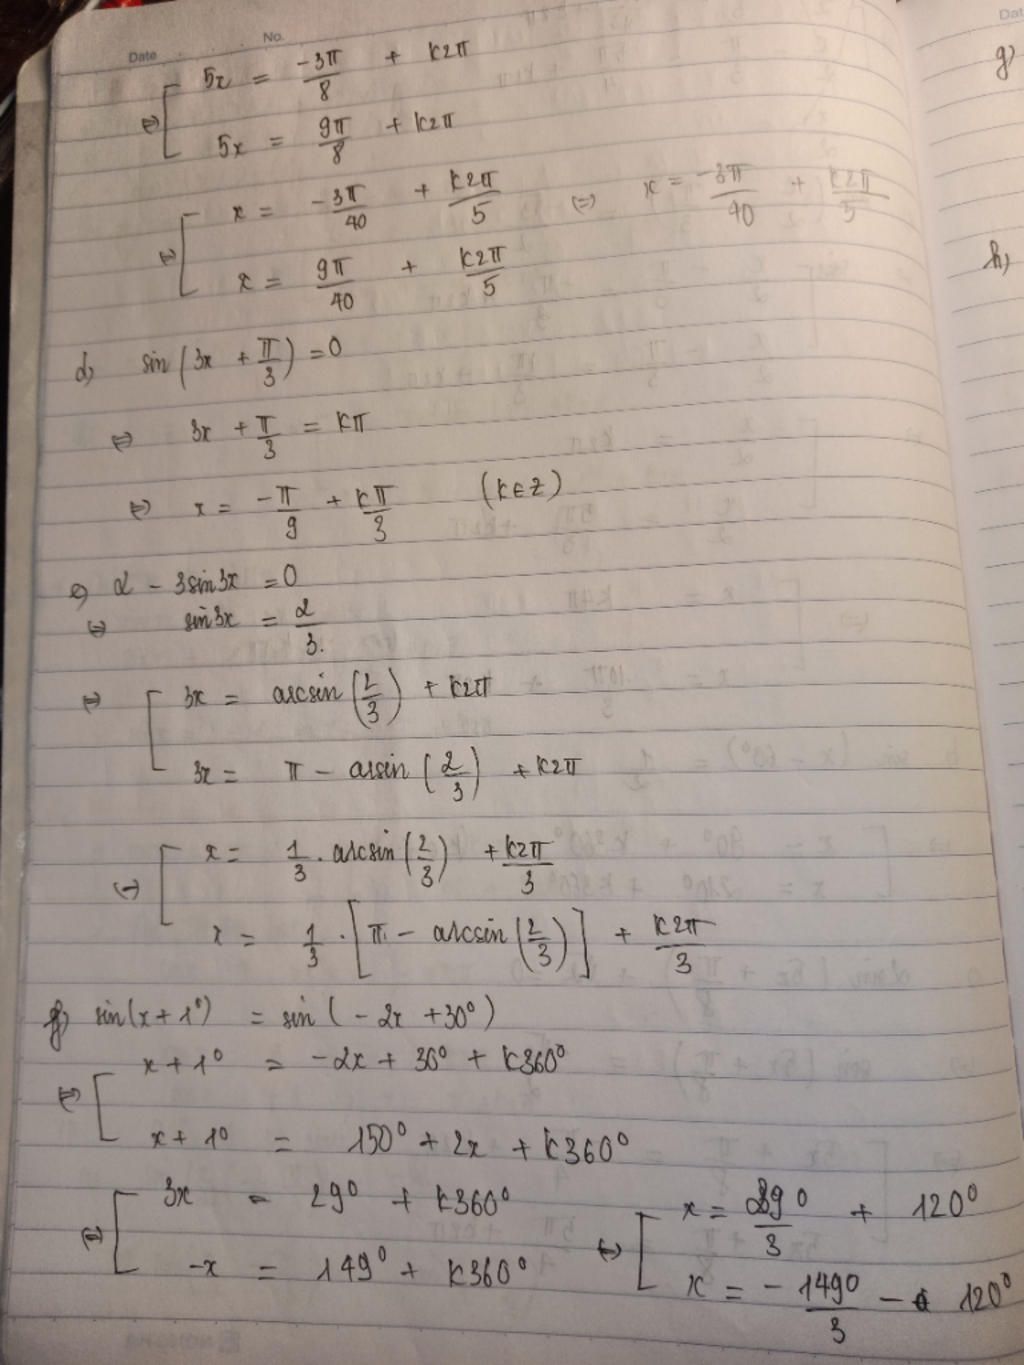 Date No. Dat
⇔ [ 5x = -3π/8 + k2π
5x = 9π/8 + k2π
⇔ [ x = -3π/40 + k2π/5 ⇔ x = -3π/40 + k2π/5
x = 9π/40 + k2π/5
d, sin(3x + π/3) = 0
⇔ 3x + π/3 = kπ
⇔ x = -π/9 + kπ/3 (k∈Z)
e, 2 - 3sin3x = 0
⇔ sin3x = 2/3.
⇔ [ 3x = arcsin(2/3) + k2π
3x = π - arsin(2/3) + k2π
⇔ [ x = 1/3 . arcsin(2/3) + k2π/3
x = 1/3 . [π - arcsin(2/3)] + k2π/3
f, sin(x + 1°) = sin(-2x + 30°)
⇔ [ x + 1° = -2x + 30° + k360°
x + 1° = 150° + 2x + k360°
⇔ [ 3x = 29° + k360° ⇔ [ x = 29°/3 + 120°
-x = 149° + k360° x = -149°/3 - 120°
g,
h,